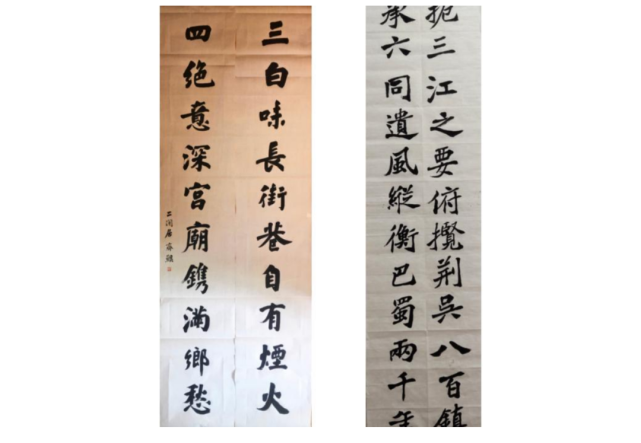 三白味長街巷自有煙火
四絶意深宫廟鎸滿鄉愁
扼三江之要俯攬荆吳八百鎮
承六同遺風縱衡巴蜀兩千年